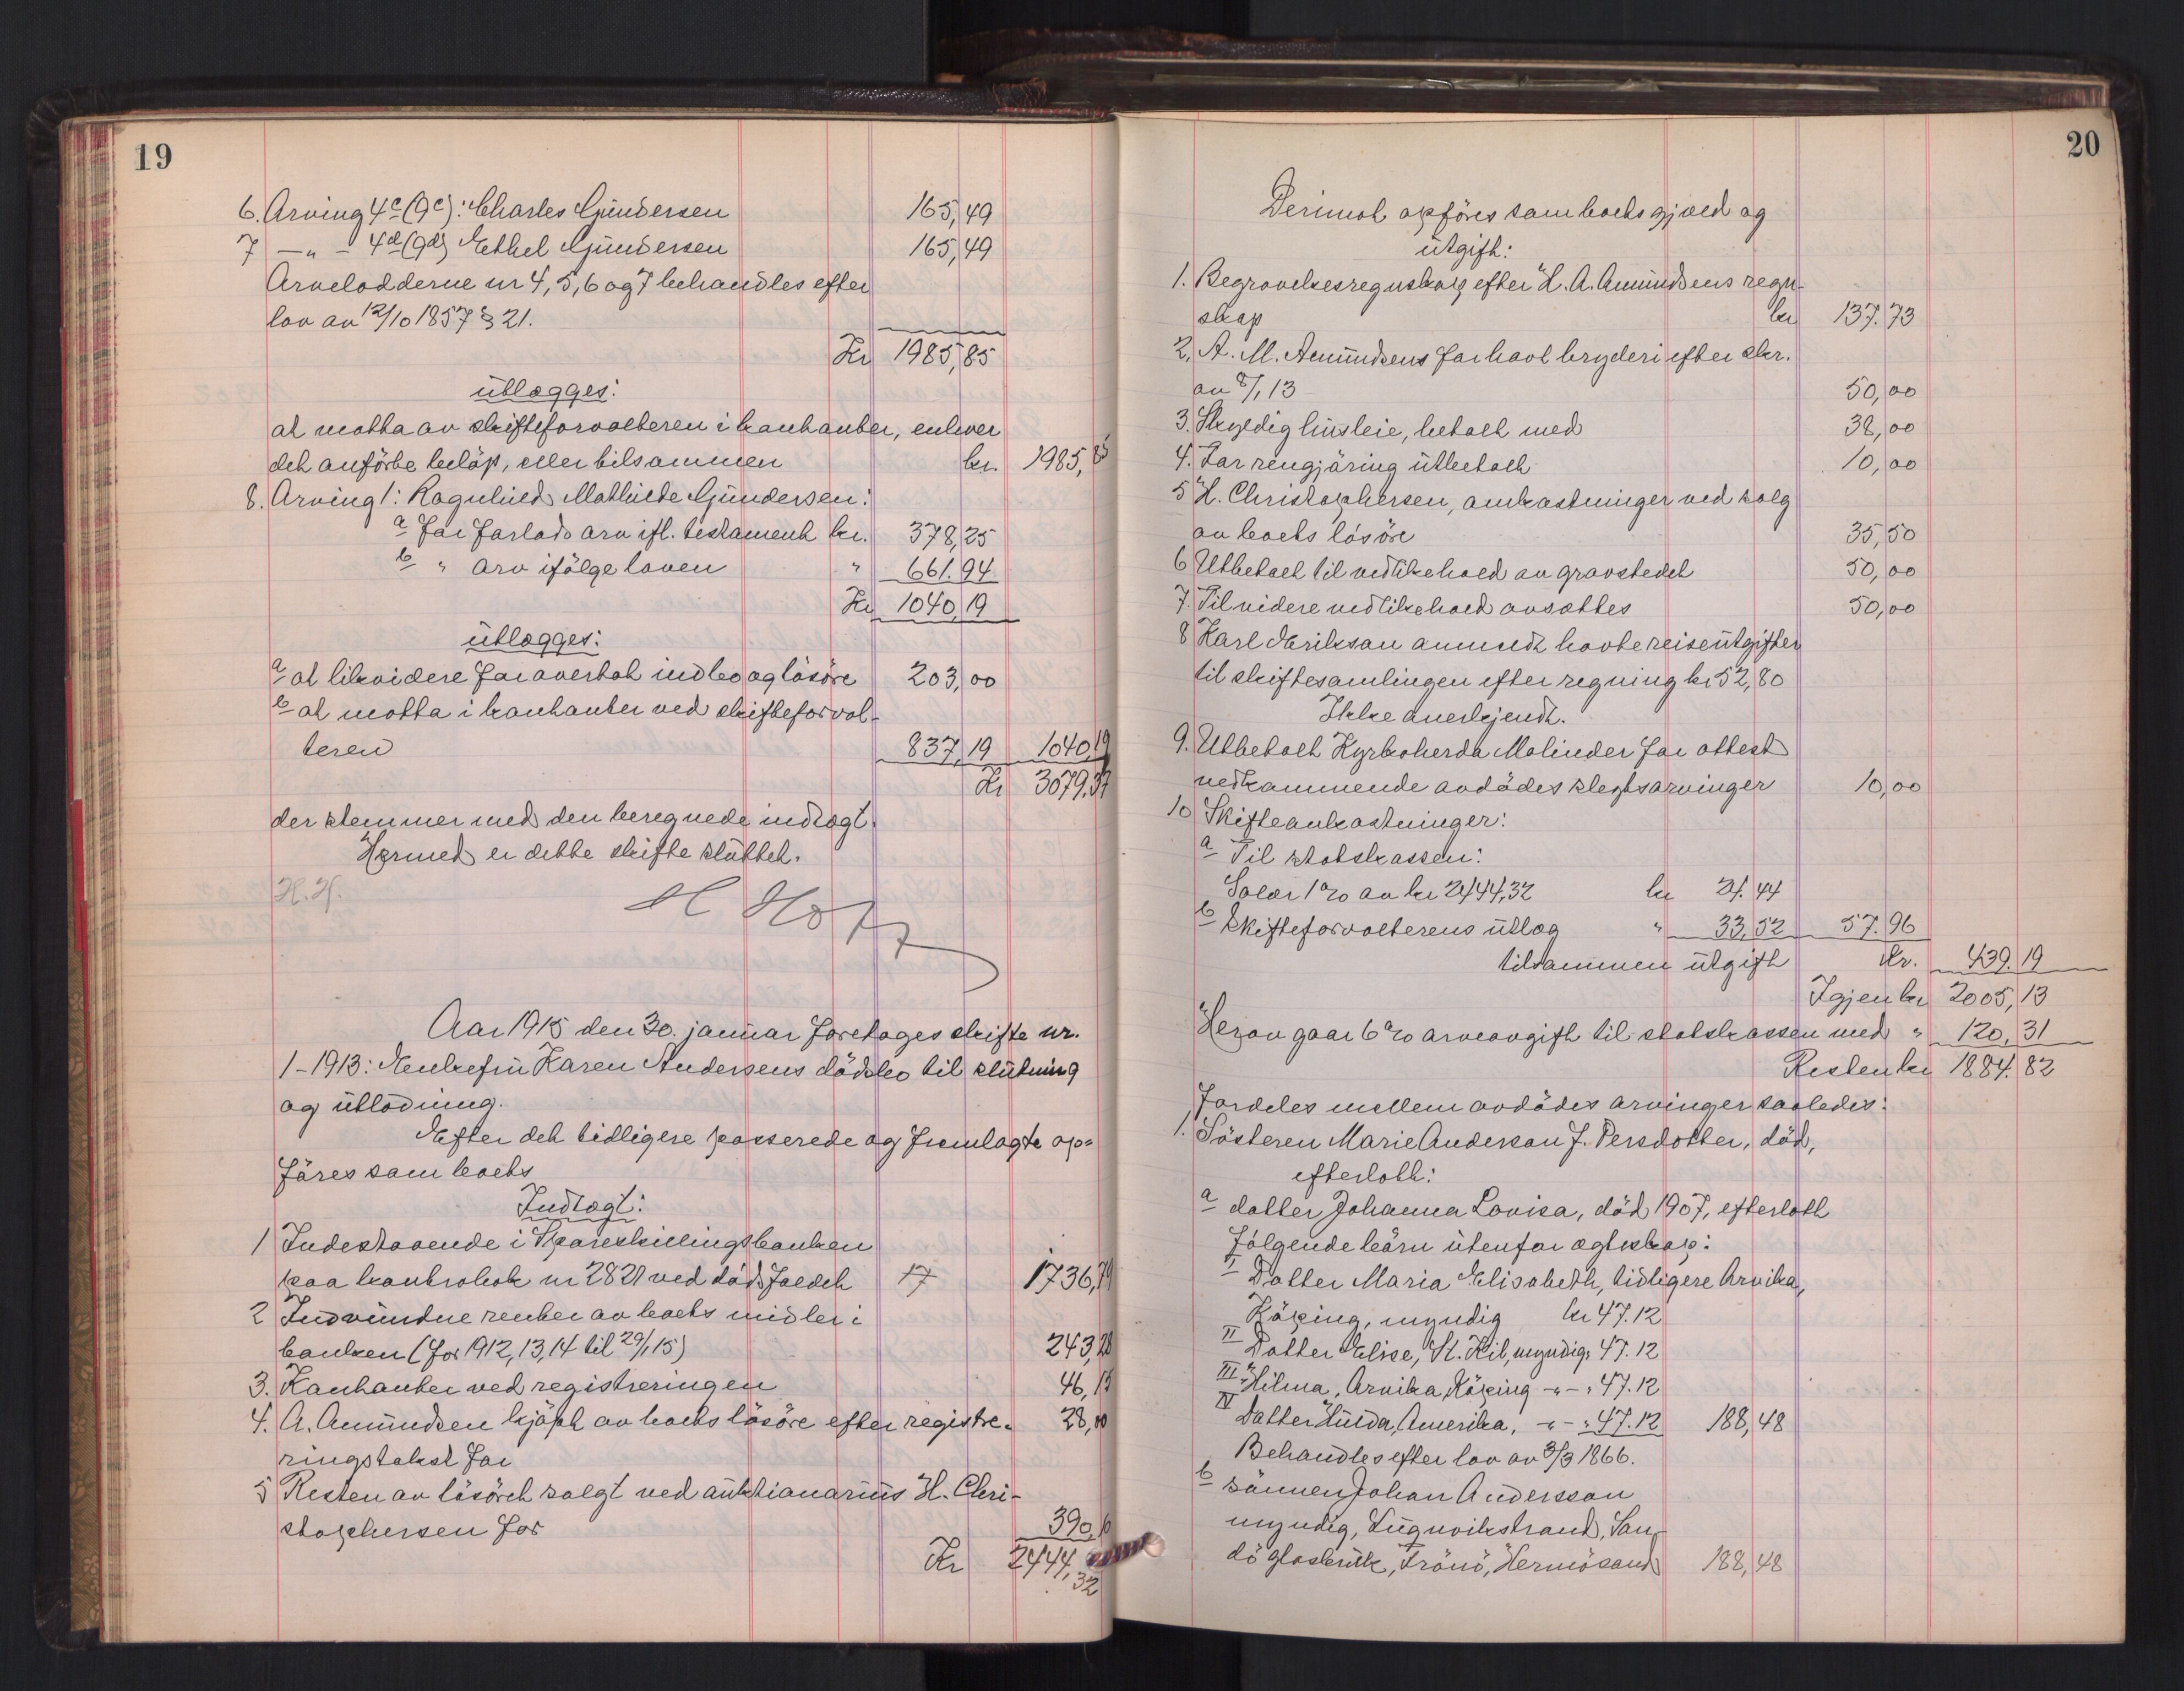 19
6. Arving 4c (9c): Charles Gundersen 165,49
7 —"— 4d (9d) Ethel Gundersen 165,49
Arvelodderne nr 4, 5, 6 og 7 behandles efter
lov av 12/10 1857 § 21.
Kr 1985,85
utlægges:
at motta av skifteforvalteren i kontanter, enhver
det anførte beløp, eller tilsammen kr. 1985,85
8. Arving 1: Ragnhild Mathilde Gundersen:
a For forlods arv ifl. testament kr. 378,25
b " arv ifølge loven " 661.94
Kr 1040,19
utlægges:
a at likvidere for overtat indbo og løsøre 203,00
b at motta i kontanter ved skifteforval-
teren 837,19 1040,19
Kr 3079,37
der stemmer med den beregnede indtægt.
Hermed er dette skifte sluttet.
H. H.
Aar 1915 den 30. januar foretages skifte nr.
1-1913: Enkefru Karen Andersens dødsbo til slutning
og utlodning.
Efter det tidligere passerede og fremlagte op-
føres som boets
Indtægt:
1 Indestaaende i Spareskillingsbanken
paa kontrabok nr 2821 ved dødsfaldet 17 1736,79
2 Indvundne renter av boets midler i
banken (for 1912, 13, 14 til 29/1 15) 243,28
3. Kontanter ved registreringen 46,15
4. A. Amundsen kjøpt av boets løsøre efter registre- 28,00
ringstakst for
5 Resten av løsøret solgt ved auktionarius H. Chri-
stophersen for 390,10
Kr 2444,32
20
Derimot opføres som boets gjæld og
utgift:
1. Begravelsesregnskap efter H. A. Amundsens regn-
skap kr 137.73
2. A. M. Amundsens for havt bryderi efter skr.
av 8/1 13 50,00
3. Skyldig husleie, betalt med 38,00
4. For rengjøring utbetalt 10,00
5 H. Christophersen, omkostninger ved salg
av boets løsöre 35,50
6 Utbetalt til vedlikehold av gravstedet 50,00
7. Til videre vedlikehold avsættes 50,00
8 Karl Eriksson anmeldt havte reiseutgifter
til skiftesamlingen efter regning kr 52,80
Ikke anerkjendt.
9. Utbetalt Kyrkoherda Molinder for attest
vedkommende avdødes slegtsarvinger 10,00
10 Skifteomkostninger:
a Til statskassen:
Salær 1% av kr 2444,32 kr 24.44
b Skifteforvalterens utlæg " 33,52 57.96
tilsammen utgift Kr. 439.19
Igjen kr 2005,13
Herav gaar 6% arveavgift til statskassen med " 120,31
Resten kr 1884.82
fordeles mellem avdødes arvinger saaledes:
1. Søsteren Marie Anderson f. Persdotter, død,
efterlatt:
a datter Johanna Lovisa, död 1907, efterlatt
følgende børn utenfor egteskap:
I Datter Maria Elisabeth, tidligere Arvika,
Köping, myndig kr 47.12
II Datter Elise, St. Kil, myndig " 47.12
III Hilma, Arvika Köping —"— " 47.12
IV Datter Hulda, Amerika, —"— " 47.12 188,48
Behandles efter lov av 3/3 1866.
b sønnen Johan Andersson
myndig, Lugnvikstrand, San-
dö glasbruk, Frånö, Hernösand 188,48